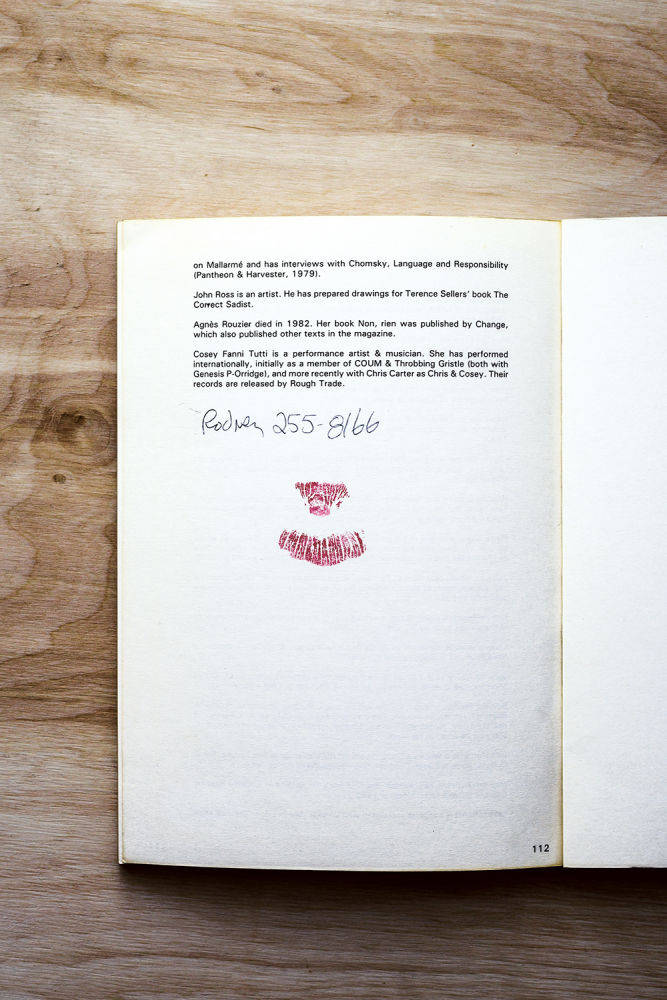 on Mallarmé and has interviews with Chomsky, Language and Responsibility
(Pantheon & Harvester, 1979).
John Ross is an artist. He has prepared drawings for Terence Sellers' book The
Correct Sadist.
Agnès Rouzier died in 1982. Her book Non, rien was published by Change,
which also published other texts in the magazine.
Cosey Fanni Tutti is a performance artist & musician. She has performed
internationally, initially as a member of COUM & Throbbing Gristle (both with
Genesis P-Orridge), and more recently with Chris Carter as Chris & Cosey. Their
records are released by Rough Trade.
Rodney 255-8166
112